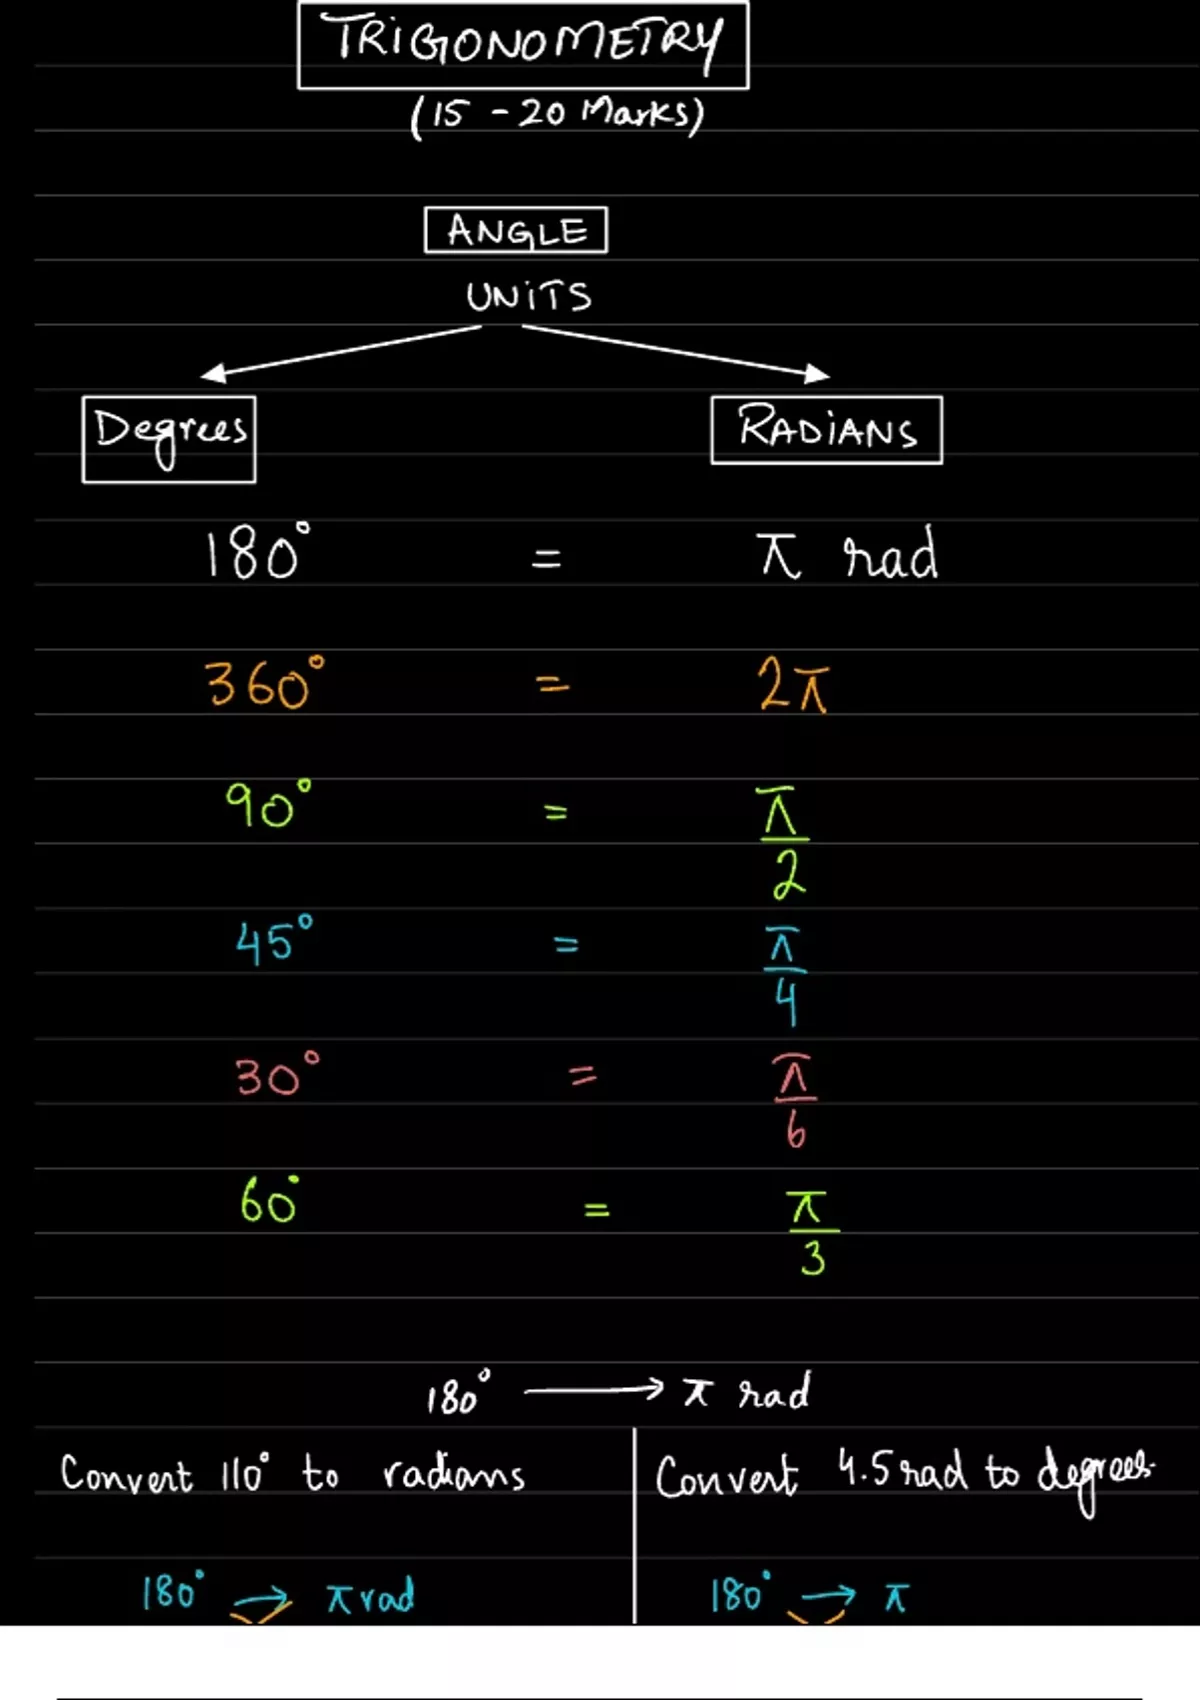 TRIGONOMETRY
(15 - 20 Marks)
ANGLE
UNITS
Degrees RADIANS
180° = π rad
360° = 2π
90° = π/2
45° = π/4
30° = π/6
60° = π/3
180° → π rad
Convert 110° to radians
180° → π rad
Convert 4.5 rad to degrees.
180° → π